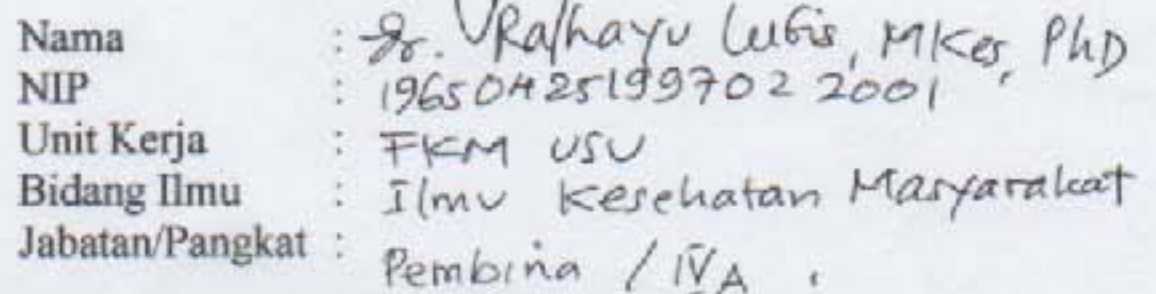 Nama : Dr. Rahayu Lubis, MKes, PhD
NIP : 19650425199702 2001
Unit Kerja : FKM USU
Bidang Ilmu : Ilmu Kesehatan Masyarakat
Jabatan/Pangkat : Pembina / IVA .